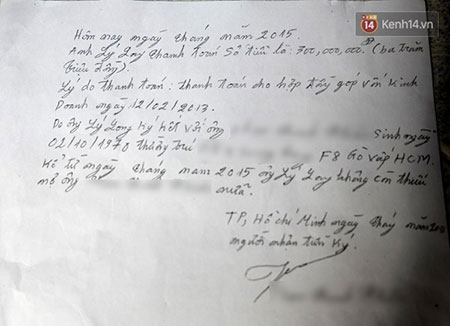 14 Kenh14.vn
Hôm nay ngày tháng năm 2015.
Anh Lý Long thanh toán Số tiền là: 300,000,000đ (ba trăm
triệu đồng).
Lý do thanh toán: thanh toán cho hợp đồng góp vốn Kinh
Doanh ngày 12/02/2013.
Do ông Lý Long Ký Kết với ông Sinh ngày
02/10/1970 thường trú F8 Gò vấp HCM.
Kể từ ngày tháng năm 2015 ông Lý Long không còn thiếu
nợ ông nữa.
TP, Hồ Chí Minh ngày tháng năm 20
người nhận tiền Ký.